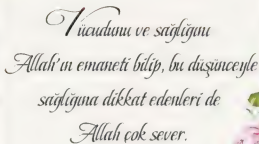 Vücudunu ve sağlığını
Allah'ın emaneti bilip, bu düşünceyle
sağlığına dikkat edenleri de
Allah çok sever.